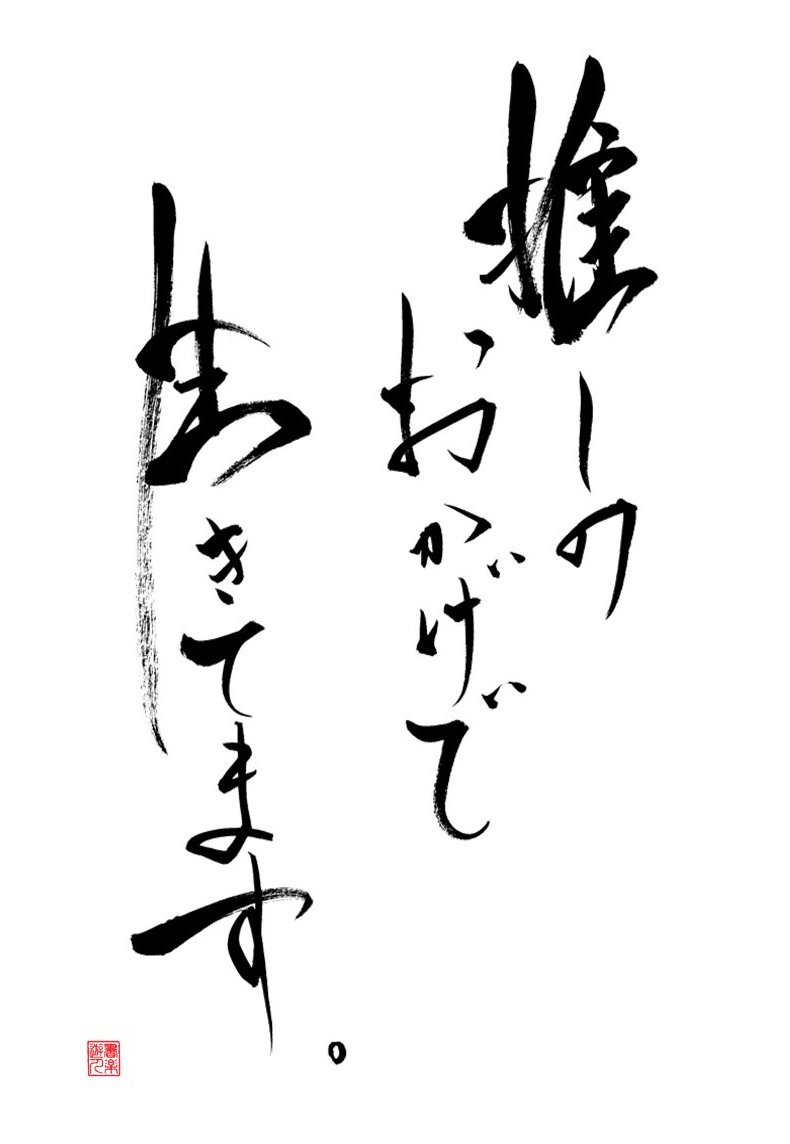 推しの
おかげで
生きてます。
書楽
遊人